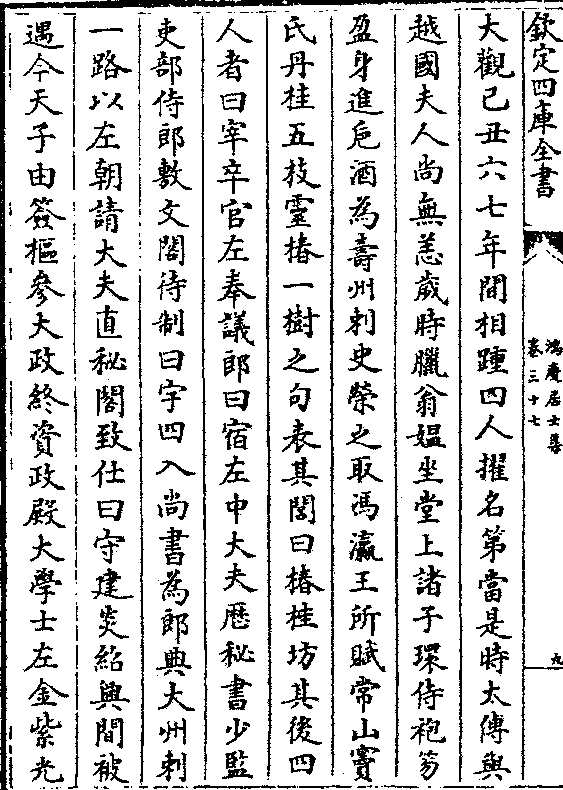 欽定四庫全書
鴻慶居士集
卷三十七
九
大觀己丑六七年間相踵四人擢名第當是時太傅與
越國夫人尚無恙歲時臘翁媼坐堂上諸子環侍袍笏
盈身進巵酒為壽州刺史榮之取馮瀛王所賦常山竇
氏丹桂五枝靈椿一樹之句表其閭曰椿桂坊其後四
人者曰宰卒官左奉議郎曰宿左中大夫歴秘書少監
吏部侍郎敷文閣待制曰字四入尚書為郎典大州刺
一路以左朝請大夫直秘閣致仕曰守建炎紹興間被
遇今天子由簽樞參大政終資政殿大學士左金紫光